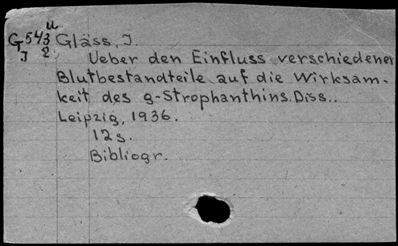 u
G543 Gläss, J.
I 2
Ueber den Einfluss verschiedener
Blutbestandteile auf die Wirksam-
keit des g-Strophanthins. Diss..
Leipzig, 1936.
12s.
Bibliogr.